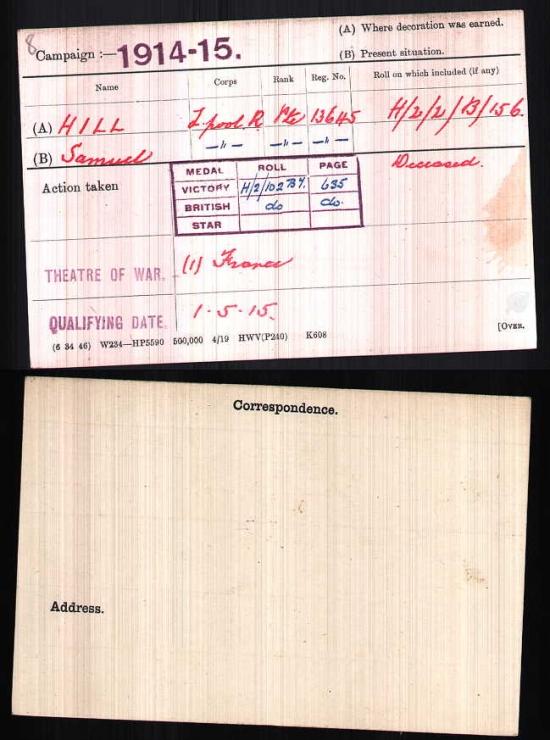 8
Campaign :— 1914-15.
(A) Where decoration was earned.
(B) Present situation.
Name Corps Rank Reg. No. Roll on which included (if any)
(A) HILL L'pool. R Pte 13645 H/2/2/B/156.
(B) Samuel —"— —"— —"— Deceased.
Action taken
MEDAL ROLL PAGE
VICTORY H/2/102 B7. 635
BRITISH do do.
STAR
THEATRE OF WAR. (1) France
QUALIFYING DATE. 1·5·15.
(6 34 46) W234—HP5590 500,000 4/19 HWV(P240) K608
[OVER.
Correspondence.
Address.